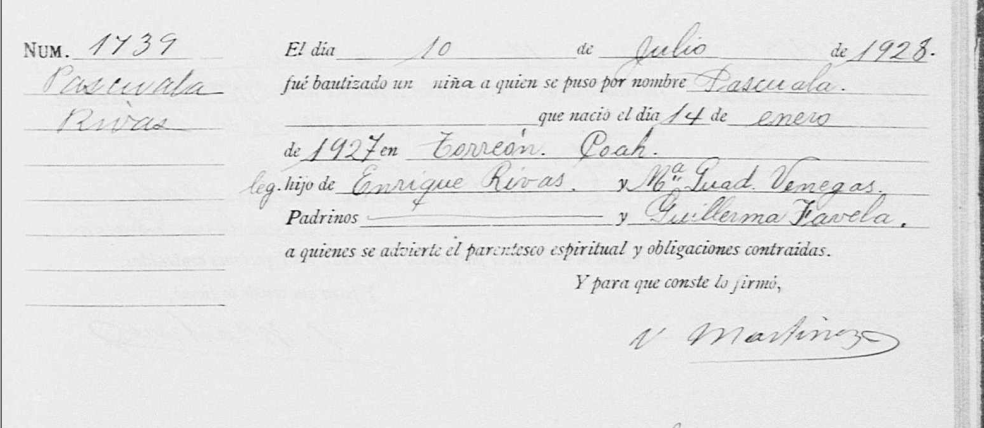 NUM. 1739
Pascuala
Rivas
El día 10 de Julio de 1928.
fué bautizado un niña a quien se puso por nombre Pascuala.
que nació el día 14 de enero
de 1927 en Torreón. Coah.
leg. hijo de Enrique Rivas. y Mª Guad. Venegas.
Padrinos y Guillerma Favela.
a quienes se advierte el parentesco espiritual y obligaciones contraidas.
Y para que conste lo firmó,
V Martinez